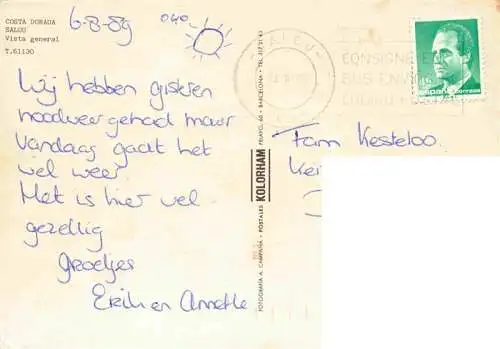 COSTA DORADA
SALOU
Vista general
T.61130
6-8-89 040
Wij hebben gisteren
noodweer gehad maar
vandaag gaat het
wel weer
Het is hier wel
gezellig
Groetjes
Erik en Annette
FOTOGRAFIA A. CAMPAÑA • POSTALES KOLORHAM PELAYO, 60 • BARCELONA • TEL.
SALOU
CONSIGNE EN
SUS ENVIOS
CODIGO POSTAL
45
españa correos
Fam Kesteloo.